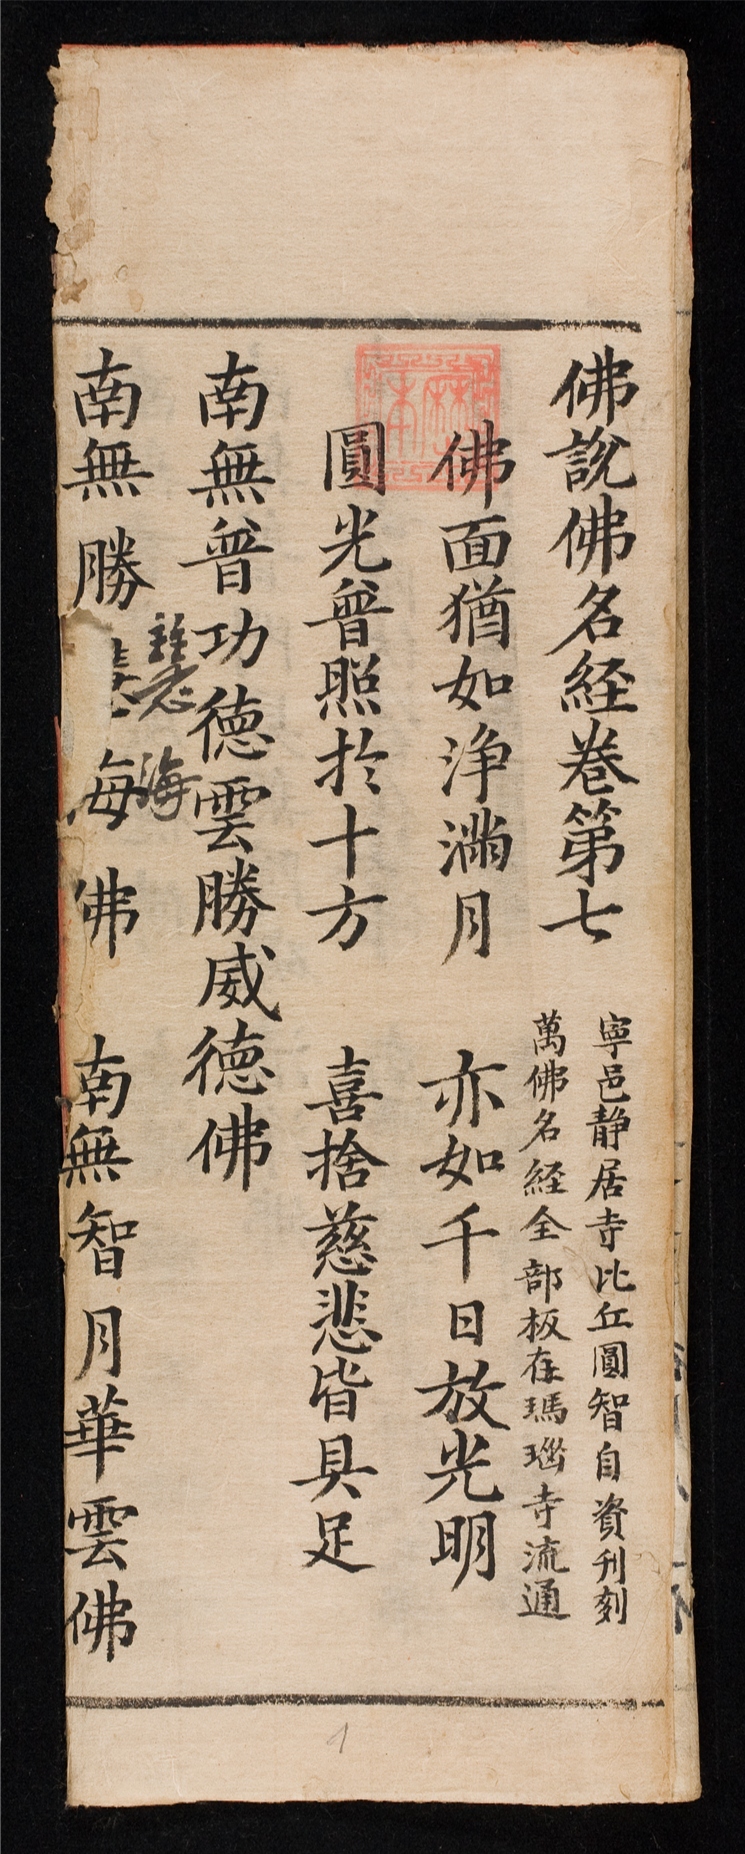 佛說佛名経卷第七
寧邑静居寺比丘圓智自資刊刻
萬佛名経全部板在瑪瑙寺流通
佛面猶如浄滿月 亦如千日放光明
圓光普照扵十方 喜捨慈悲皆具足
南無普功德雲勝威德佛
慧
海
南無勝慧海佛 南無智月華雲佛